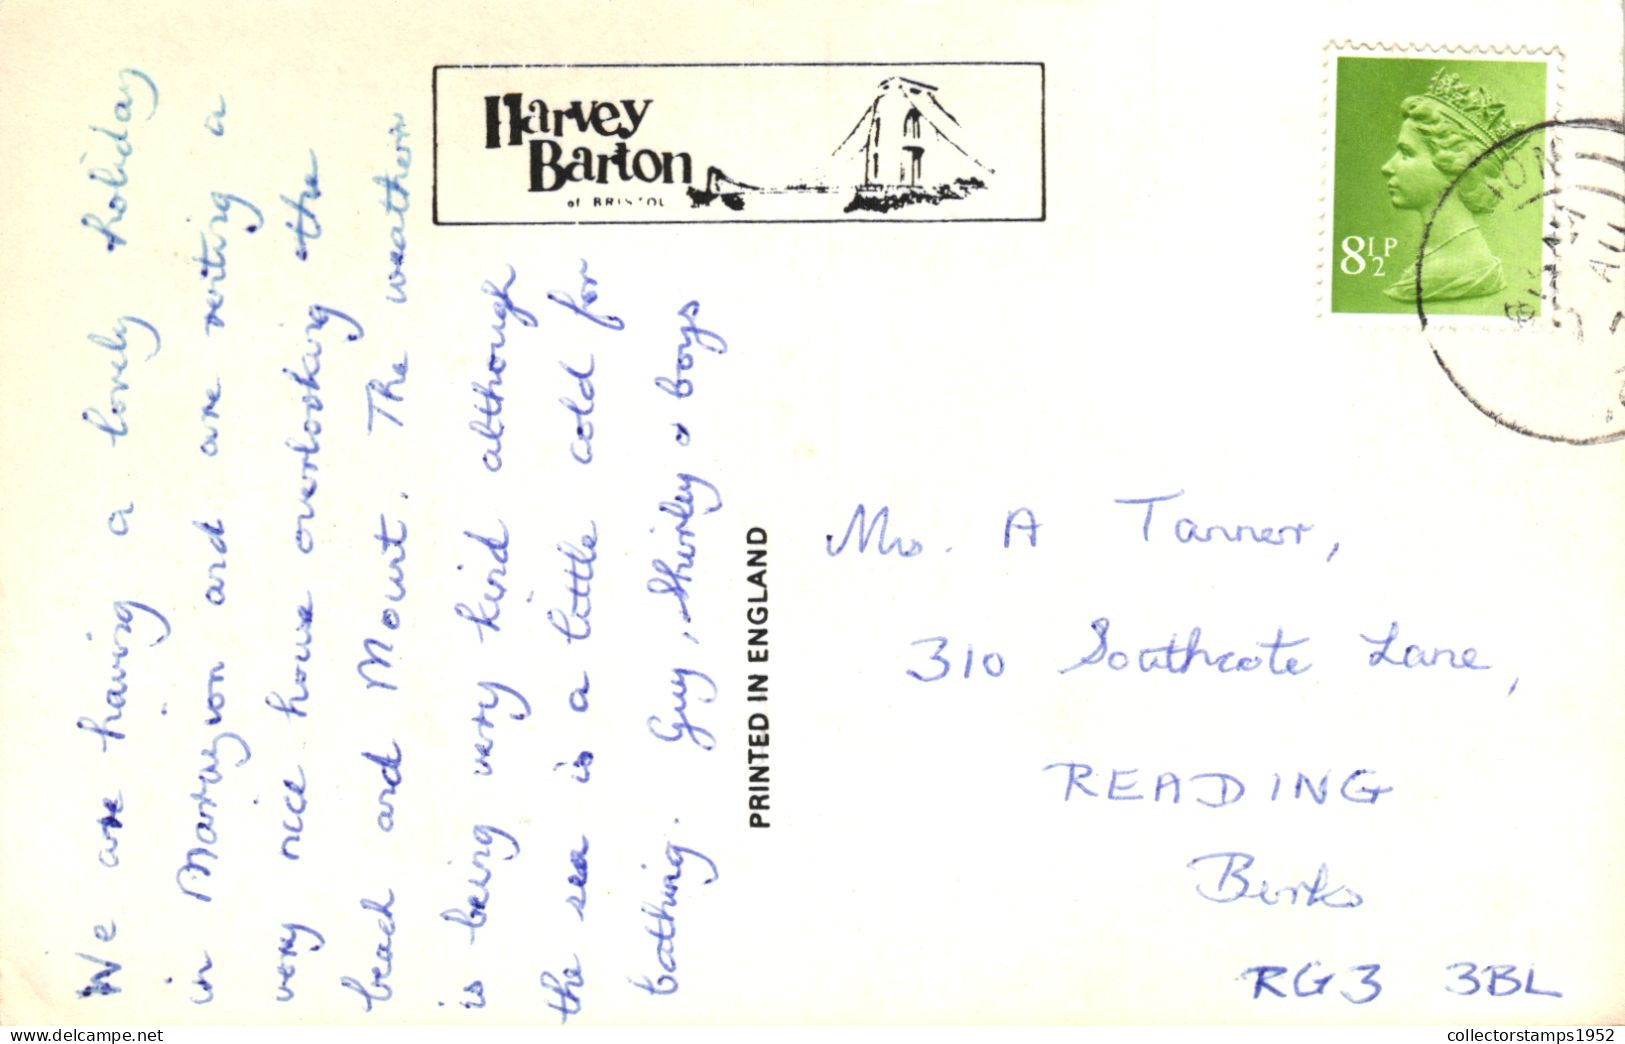 We are having a lovely holiday
in Marazyon and are renting a
very nice house overlooking the
beach and Mount. The weather
is being very kind although
the sea is a little cold for
bathing. Guy, Shirley & boys
Harvey
Barton
of BRISTOL
PRINTED IN ENGLAND
8½P
Mrs. A Tanner,
310 Southcote Lane,
READING
Berks
RG3 3BL
collectorstamps1952